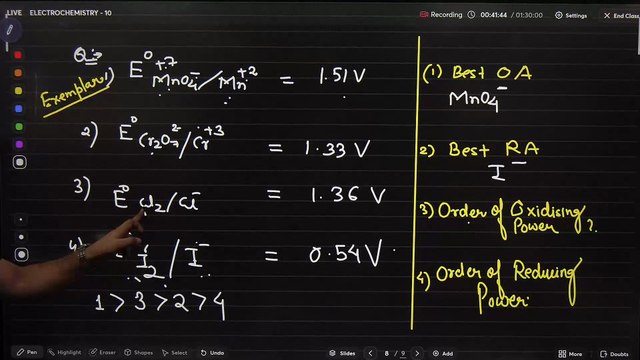 LIVE ELECTROCHEMISTRY - 10
Recording
00:41:44 / 01:30:00
Settings
End Class
Q:-
Exemplar
1) E⁰ +7 MnO4⁻/Mn+2 = 1.51 V
2) E⁰ Cr2O7²⁻/Cr+3 = 1.33 V
3) E⁰ Cl2/Cl⁻ = 1.36 V
4) I2/I⁻ = 0.54 V
1 > 3 > 2 > 4
(1) Best OA
MnO4⁻
2) Best RA
I⁻
3) Order of Oxidising
Power ?
4) Order of Reducing
Power
Pen
Text
Select
Undo
Slides
8 / 9
More
Doubts